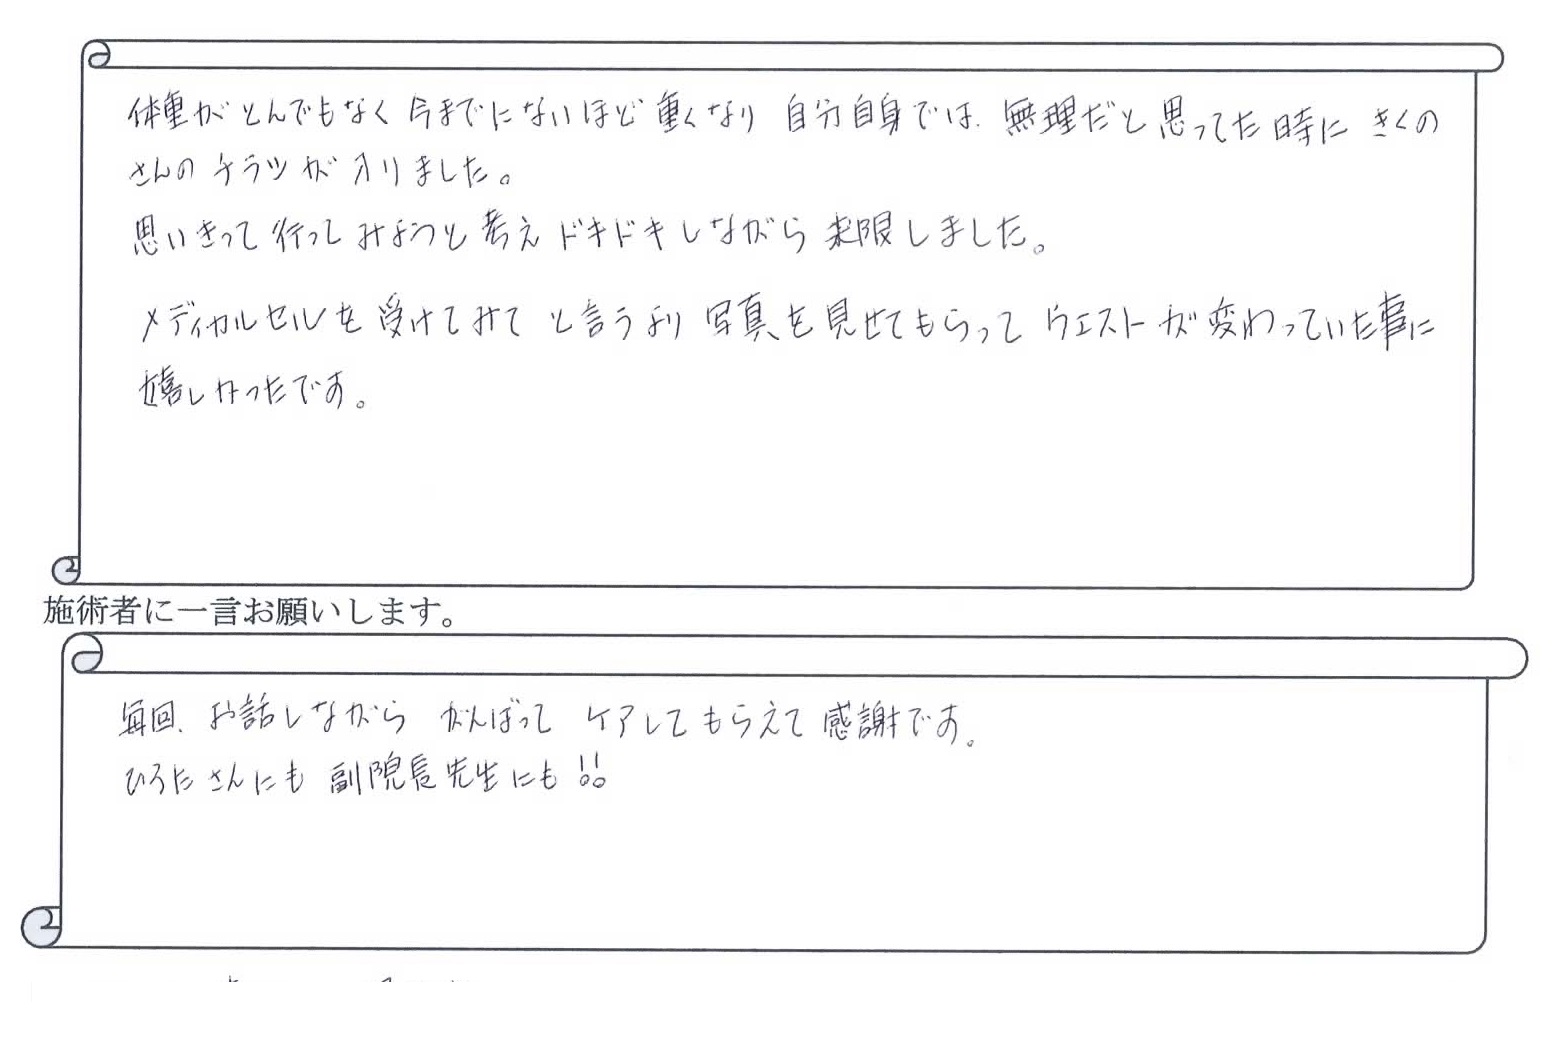 体重がとんでもなく 今までにないほど 重くなり 自分自身では、無理だと思ってた時に きくの
さんの チラシが入りました。
思いきって行ってみようと考え ドキドキしながら 来限しました。
メディカルセルを受けてみて と言うより 写真を見せてもらって ウエストが変わっていた事に
嬉しかったです。
施術者に一言お願いします。
毎回、お話しながら がんばって ケアしてもらえて感謝です。
ひろたさんにも 副院長先生にも!!